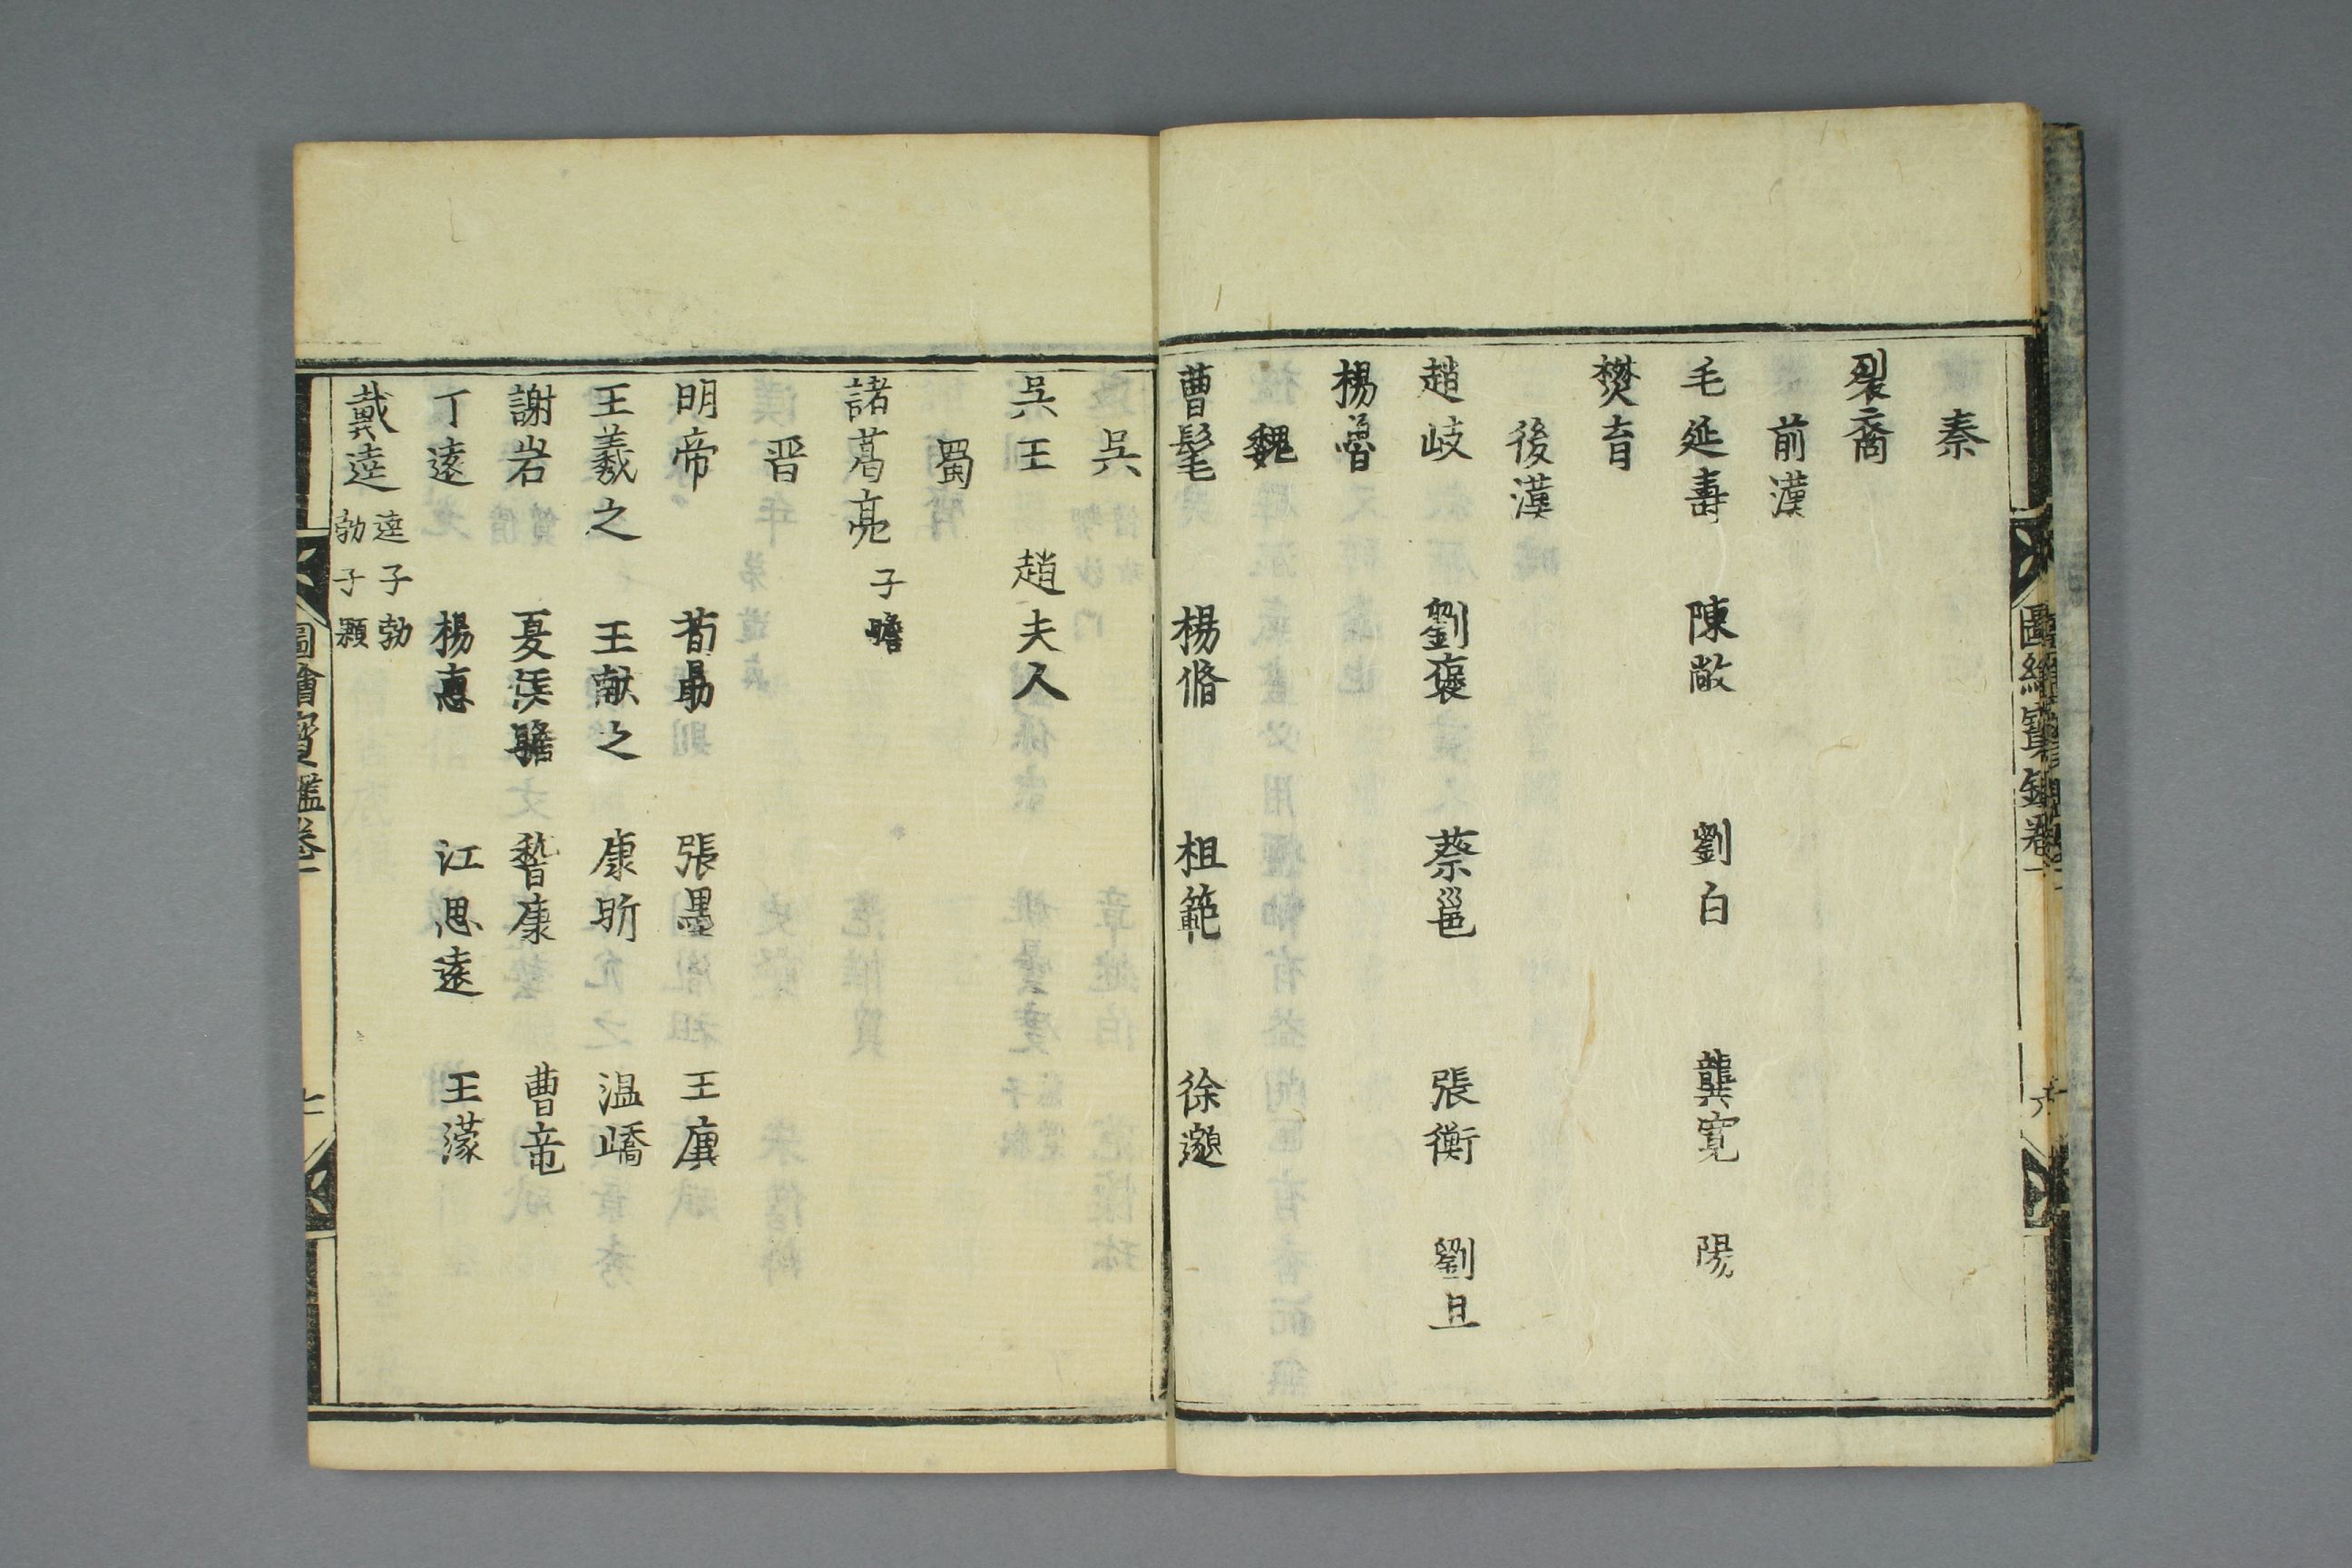 秦
裂裔
前漢
毛延壽 陳敞 劉白 龔寛 陽
樊育
後漢
趙岐 劉褒 蔡邕 張衡 劉旦
楊魯
魏
曹髦 楊脩 柤範 徐邈
吳
吳王 趙夫人
蜀
諸葛亮 子瞻
晋
明帝 荀勗 張墨 王廙
王羲之 王献之 康昕 温嶠
謝岩 夏侯瞻 嵆康 曹竜
丁遠 楊惠 江思遠 王濛
戴逵 逵子勃 勃子顒
圖繪寳鑑卷一